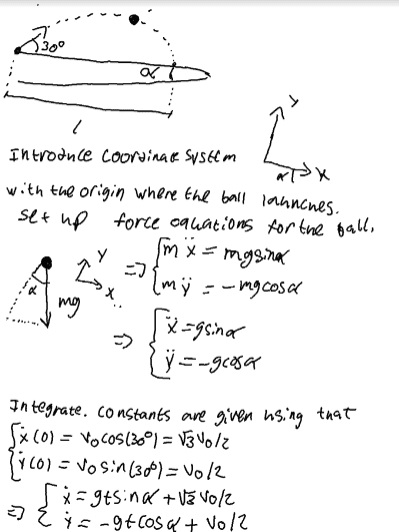 30°
α
l
y
x
α
Introduce coordinate system
with the origin where the ball launches.
set up force equations for the ball.
α
mg
y
x
=> { m ẍ = mg sinα
m ÿ = -mg cosα
=> { ẍ = g sinα
ÿ = -g cosα
Integrate. constants are given using that
{ ẋ(0) = v₀ cos(30°) = √3 v₀/2
ẏ(0) = v₀ sin(30°) = v₀/2
=> { ẋ = gt sinα + √3 v₀/2
ẏ = -gt cosα + v₀/2